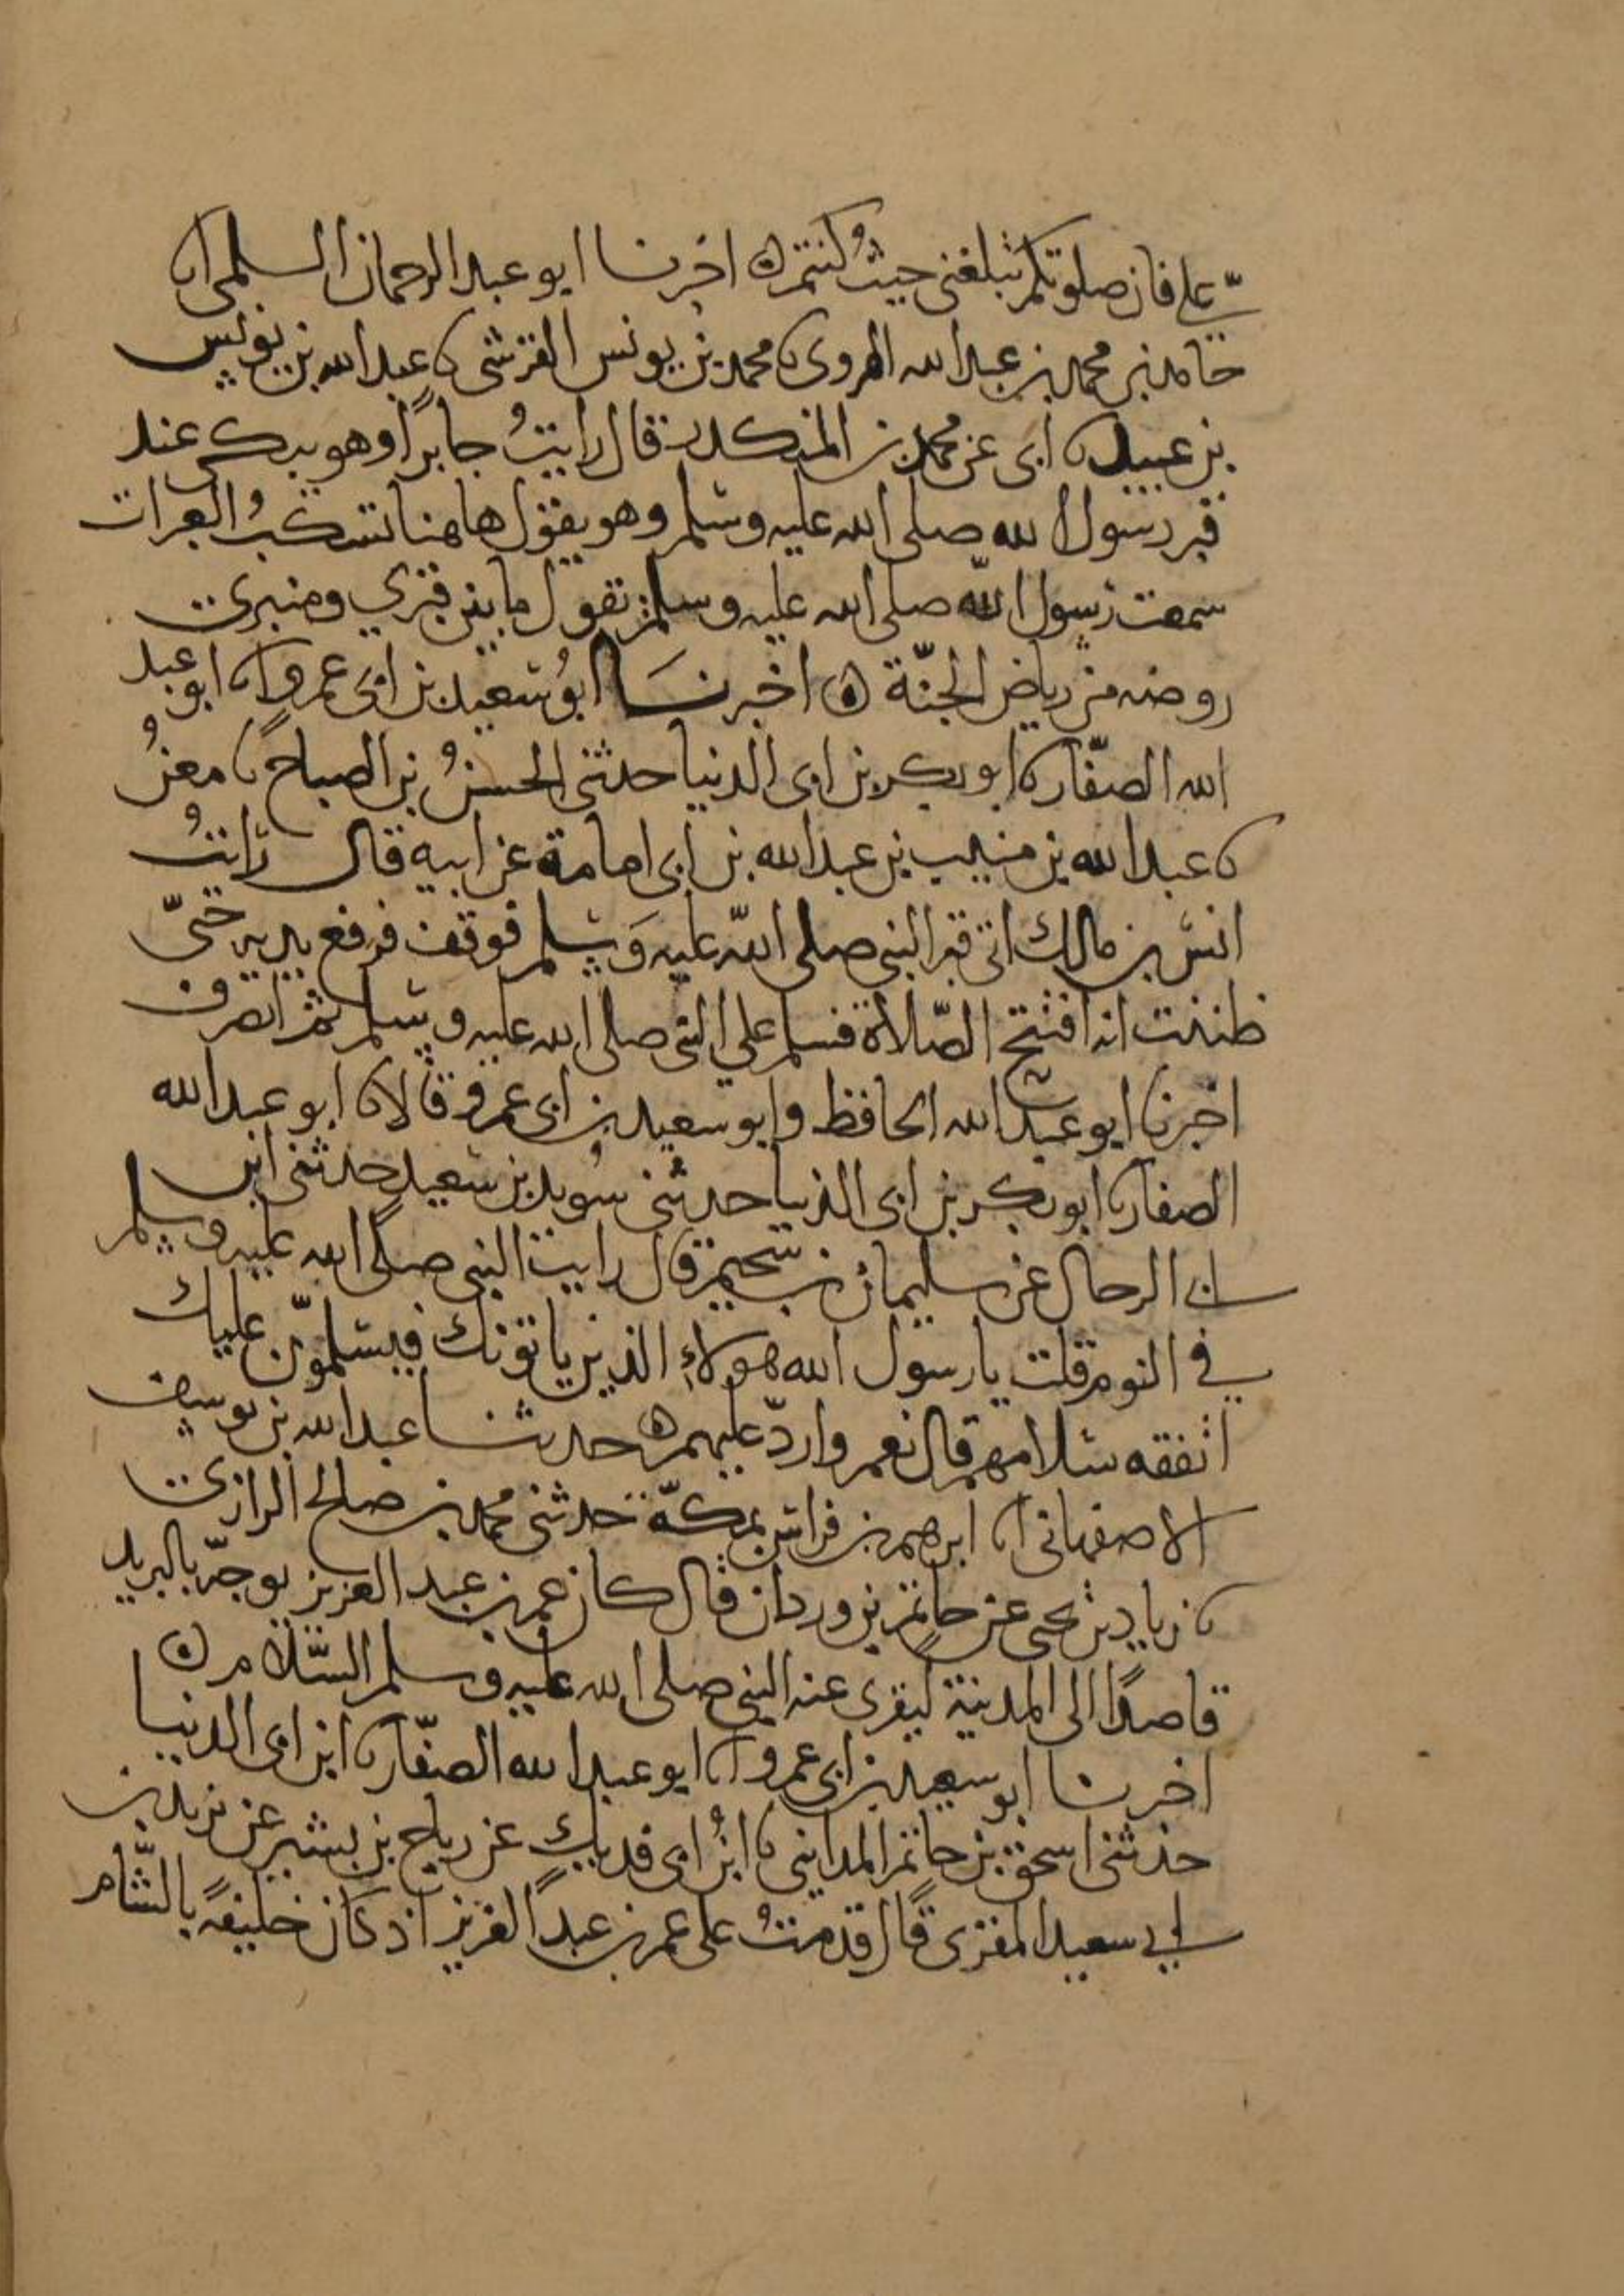 عليّ فان صلوتكم تبلغني حيثُ كنتم ه اخبرنا ابو عبد الرحمان السلمي انا
حامد بن محمد بن عبد الله الهروي نا محمد بن يونس القرشي نا عبد الله بن يونس
بن عبيد نا ابى عن محمد بن المنكدر قال رايتُ جابرًا وهو يبكي عند
قبر رسول الله صلى الله عليه وسلم وهو يقول هاهنا تسكبُ العبرات
سمعت رسول الله صلى الله عليه وسلم يقول ما بين قبري ومنبري
روضه من رياض الجنّة ه اخبرنَا ابوُ سعيد بن ابى عمرو انا ابو عبد
الله الصفّار نا ابو بكر بن ابى الدنيا حدثني الحسنُ بن الصباح نا معنُ
نا عبد الله بن منيب بن عبد الله بن ابى امامة عن ابيه قال رايتُ
انس بن مالك اتى قبر النبي صلى الله عليه وَسلم فوقف فرفع يديه حتىّ
ظننت انه افتتح الصّلاة فسلم علي النبي صلى الله عليه وسلم ثم انصرف
اخبرنا ابو عبد الله الحافظ وابو سعيد بن ابى عمرو قالا نا ابو عبد الله
الصفار نا ابو بكر بن ابى الدنيا حدثني سُويد بن سعيد حدثني ابن
ابى الرجال عن سليمان بن سحيم قال رايت النبي صلى الله عليه وسلم
في النوم قلت يا رسول الله هولاءِ الذين ياتونك فيسلموّن عليك
اتفقه سلامهم قال نعم واردّ عليهم ه حدثنا عبد الله بن يوسف
الاصفهاني انا ابرهيم بن فراس بمكّة حدثني محمد بن صالح الرازي
نا زياد بن يحيى عن حاتم بن وردان قال كان عمر بن عبد العزيز يوجّه بالبريد
قاصدًا الى المدينة ليقرى عنه النبي صلى الله عليه وسلم السّلام ه
اخبرنا ابو سعيد بن ابى عمرو انا ابو عبد الله الصفّار نا ابن ابى الدنيا
حدثني اسحق بن حاتم المدايني نا ابنُ ابى فديك عن رباح بن بشير عن يزيد بن
ابي سعيد المقرى قال قدمتُ على عمر بن عبد العزيز اذ كان خليفةً بالشّام